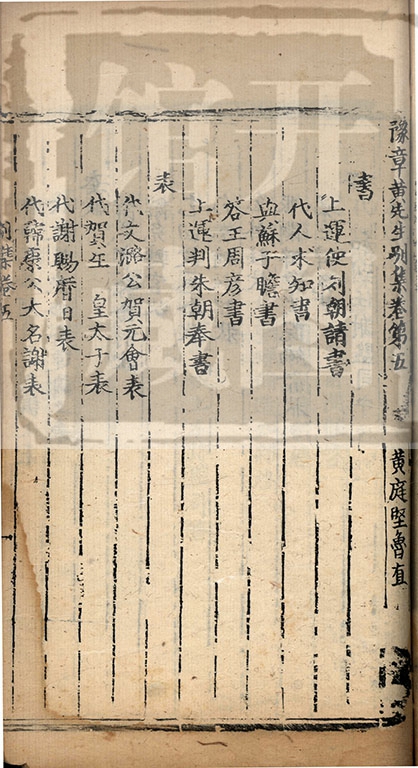 豫章黄先生别集卷第五
黄庭堅魯直
書
上運使劉朝請書
代人求知書
與蘇子瞻書
答王周彦書
上運判朱朝奉書
表
代文潞公賀元會表
代賀生 皇太子表
代謝賜曆日表
代韓康公大名謝表
别集卷五